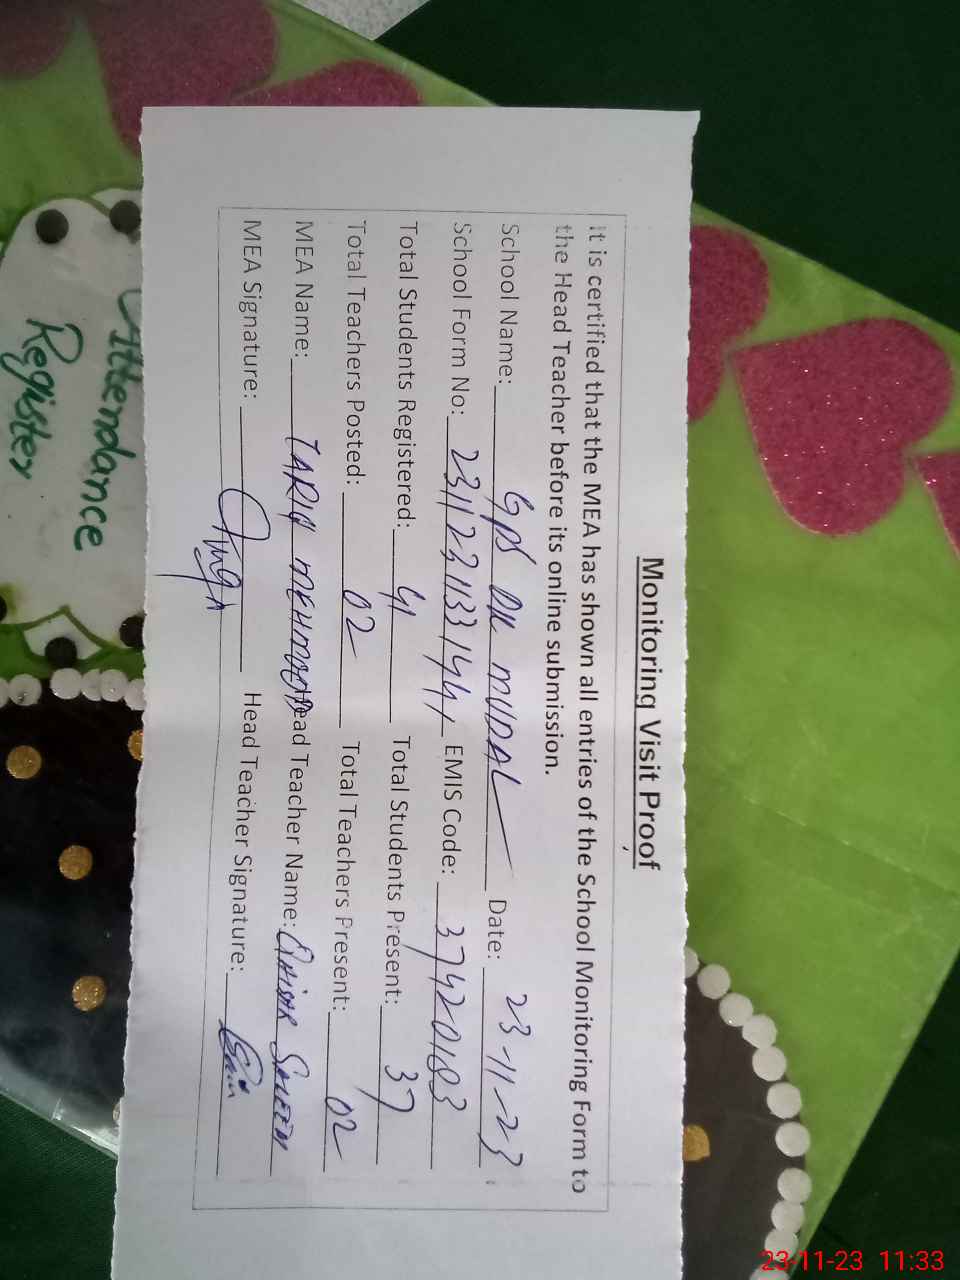 Monitoring Visit Proof
It is certified that the MEA has shown all entries of the School Monitoring Form to
the Head Teacher before its online submission.
School Name: GPS DK MUDAL Date: 23-11-23
School Form No: 23112311331441 EMIS Code: 37420183
Total Students Registered: 41 Total Students Present: 37
Total Teachers Posted: 02 Total Teachers Present: 02
MEA Name: TARIQ MEHMOOD Head Teacher Name:
MEA Signature: Head Teacher Signature:
Attendance
Register
23-11-23 11:33